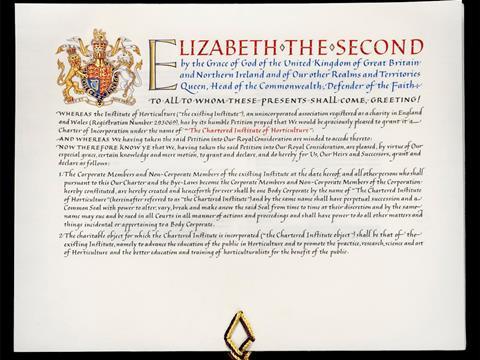 ELIZABETH·THE·SECOND
by the Grace of God of the United Kingdom of Great Britain
and Northern Ireland and of Our other Realms and Territories
Queen, Head of the Commonwealth, Defender of the Faith
TO ALL TO WHOM THESE PRESENTS SHALL COME, GREETING!
WHEREAS the Institute of Horticulture ("the existing Institute"), an unincorporated association registered as a charity in England
and Wales (Registration Number 292069), has by its humble Petition prayed that We would be graciously pleased to grant it a
Charter of Incorporation under the name of "The Chartered Institute of Horticulture":
AND WHEREAS We having taken the said Petition into Our Royal Consideration are minded to accede thereto:
NOW THEREFORE KNOW YE that We, having taken the said Petition into Our Royal Consideration, are pleased, by virtue of Our
especial grace, certain knowledge and mere motion, to grant and declare, and do hereby for Us, Our Heirs and Successors, grant and
declare as follows:
1. The Corporate Members and Non-Corporate Members of the existing Institute at the date hereof, and all other persons who shall
pursuant to this Our Charter and the Bye-Laws become the Corporate Members and Non-Corporate Members of the Corporation
hereby constituted, are hereby created and henceforth for ever shall be one Body Corporate by the name of "The Chartered Institute
of Horticulture" (hereinafter referred to as "the Chartered Institute") and by the same name shall have perpetual succession and a
Common Seal with power to alter, vary, break and make anew the said Seal from time to time at their discretion and by the same
name may sue and be sued in all Courts in all manner of actions and proceedings and shall have power to do all other matters and
things incidental or appertaining to a Body Corporate.
2. The charitable object for which the Chartered Institute is incorporated ("the Chartered Institute object") shall be that of the
existing Institute, namely to advance the education of the public in Horticulture and to promote the practice, research, science and art
of Horticulture and the better education and training of horticulturalists for the benefit of the public.